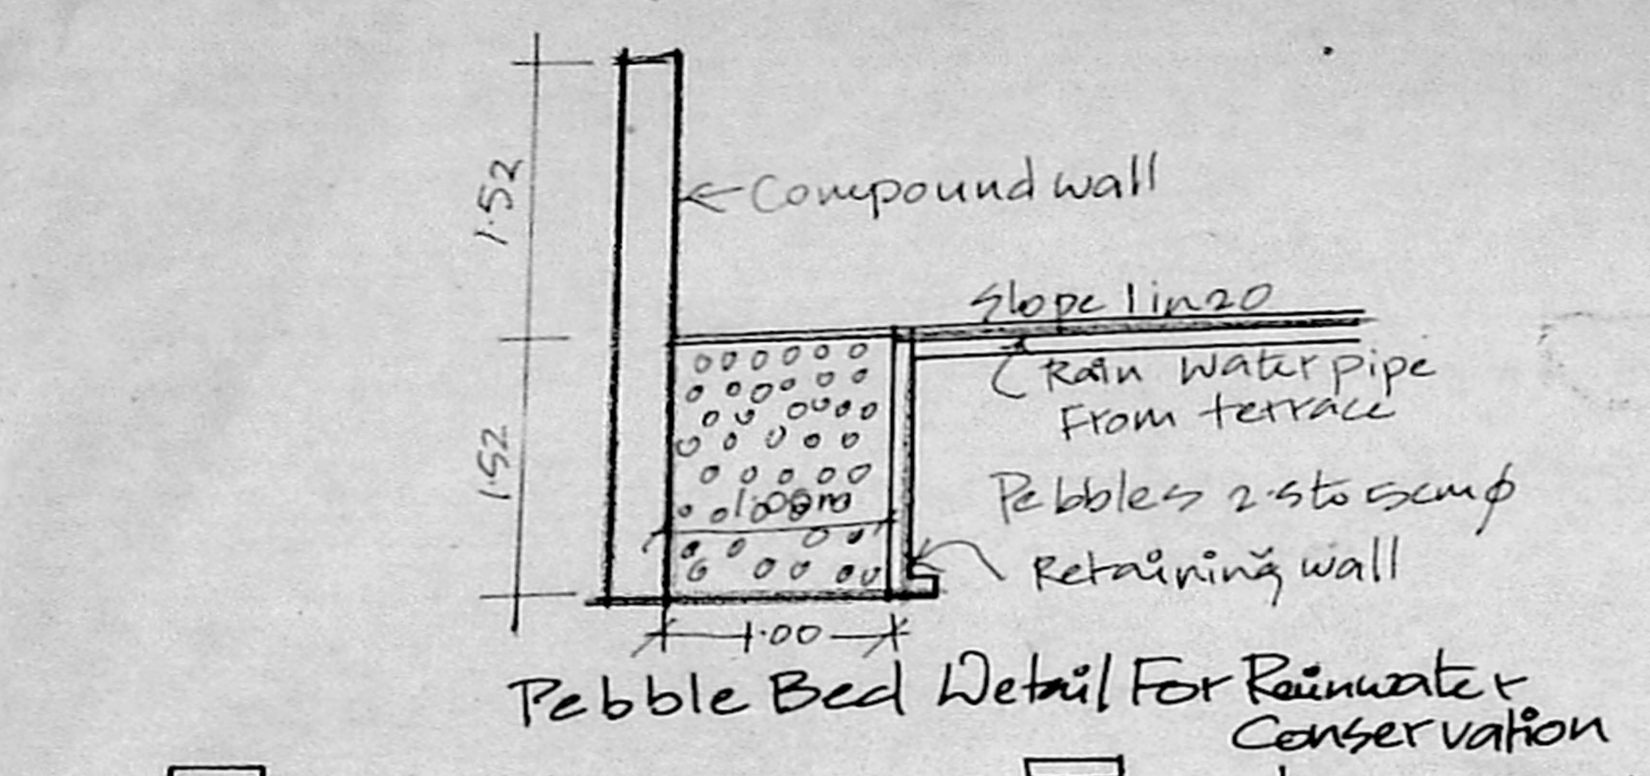 1.52
Compound wall
Slope 1 in 20
Rain water pipe
From terrace
1.52
Pebbles 2.5 to 5cm φ
1.00m
Retaining wall
1.00
Pebble Bed Detail For Rainwater
Conservation